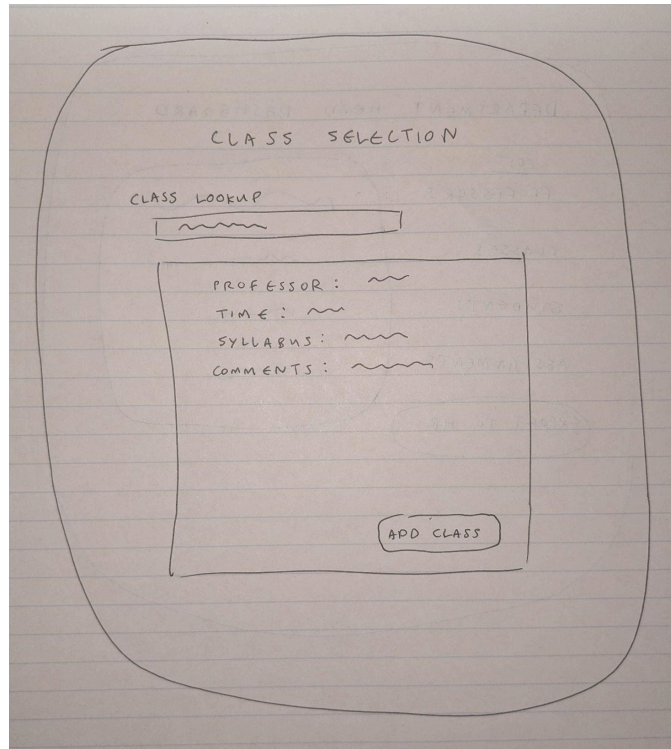 CLASS SELECTION
CLASS LOOKUP
PROFESSOR:
TIME:
SYLLABUS:
COMMENTS:
ADD CLASS